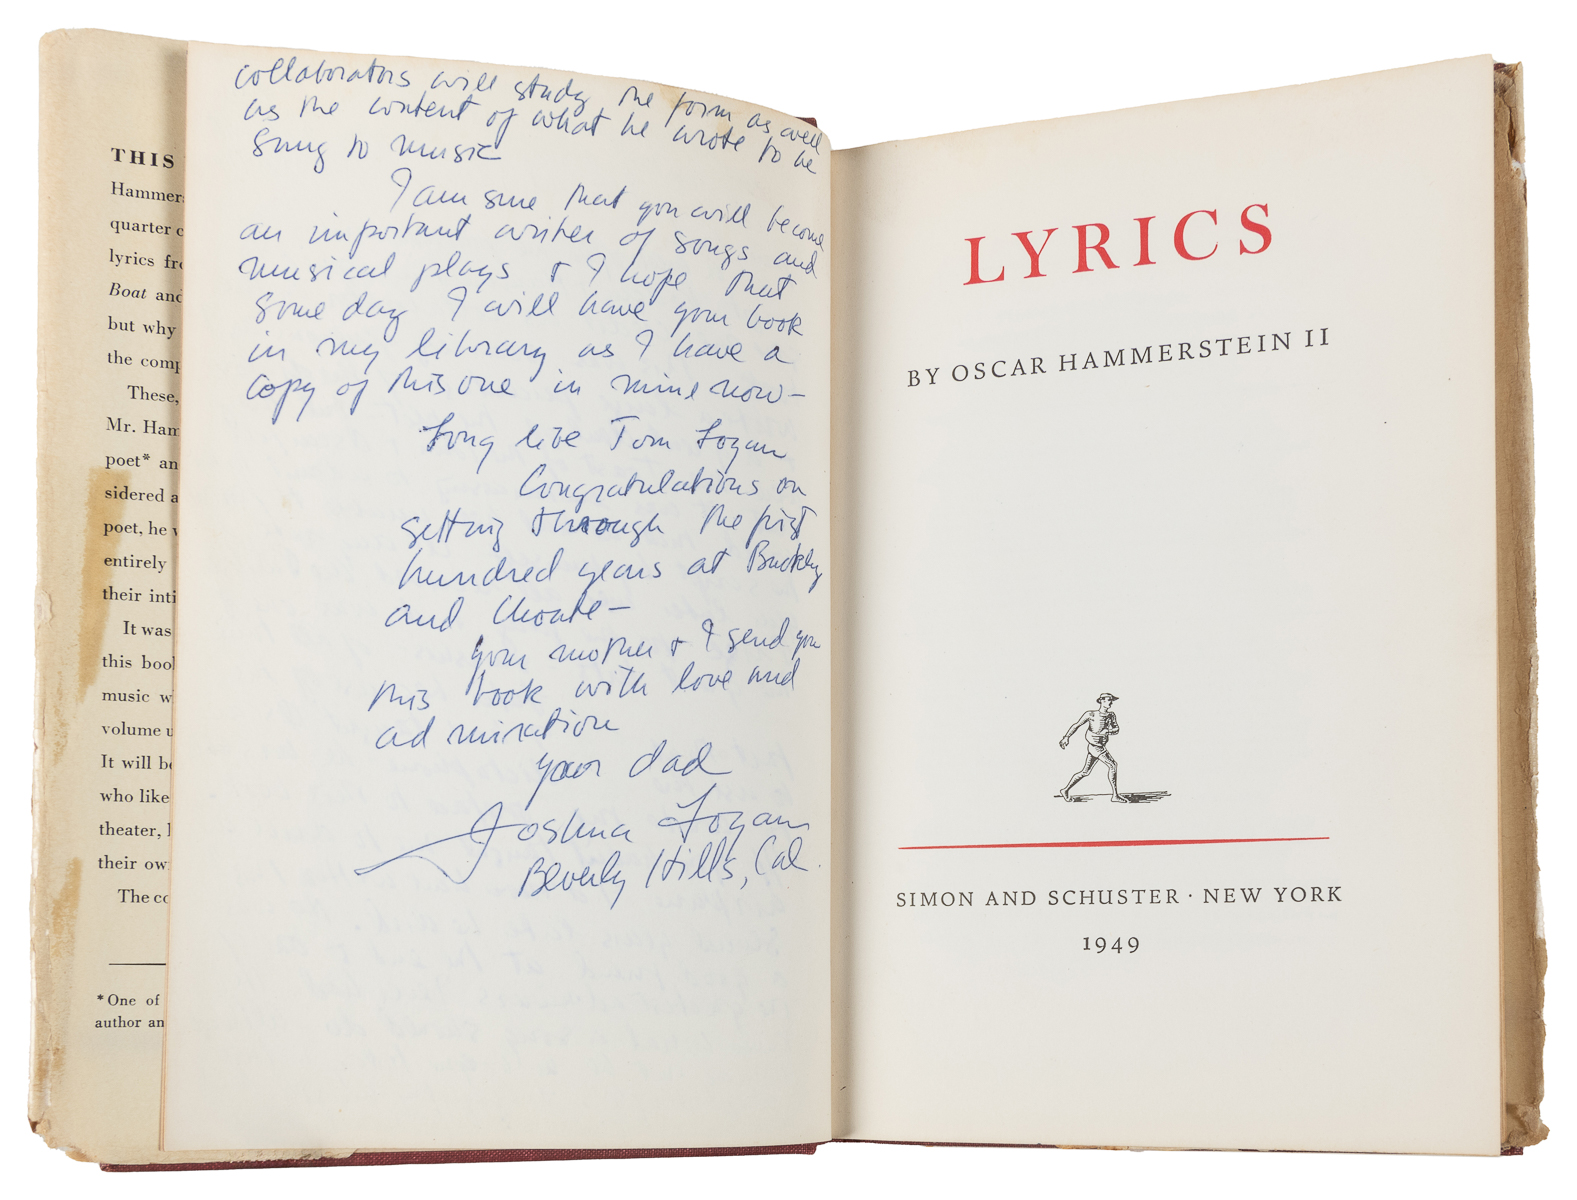 THIS
Hammers
quarter c
lyrics fro
Boat and
but why
the comp
These,
Mr. Ham
poet* an
sidered a
poet, he w
entirely
their inti
It was
this book
music w
volume u
It will be
who like
theater, l
their ow
The co
*One of
author an
collaborators will study the form as well
as the content of what he wrote to be
sung to music
I am sure that you will become
an important writer of songs and
musical plays & I hope that
some day I will have your book
in my library as I have a
copy of this one in mine now—
Long live Tom Logan
Congratulations on
getting through the first
hundred years at Buckley
and Choate—
your mother & I send you
this book with love and
admiration
your dad
Joshua Logan
Beverly Hills, Cal.
LYRICS
BY OSCAR HAMMERSTEIN II
SIMON AND SCHUSTER · NEW YORK
1949